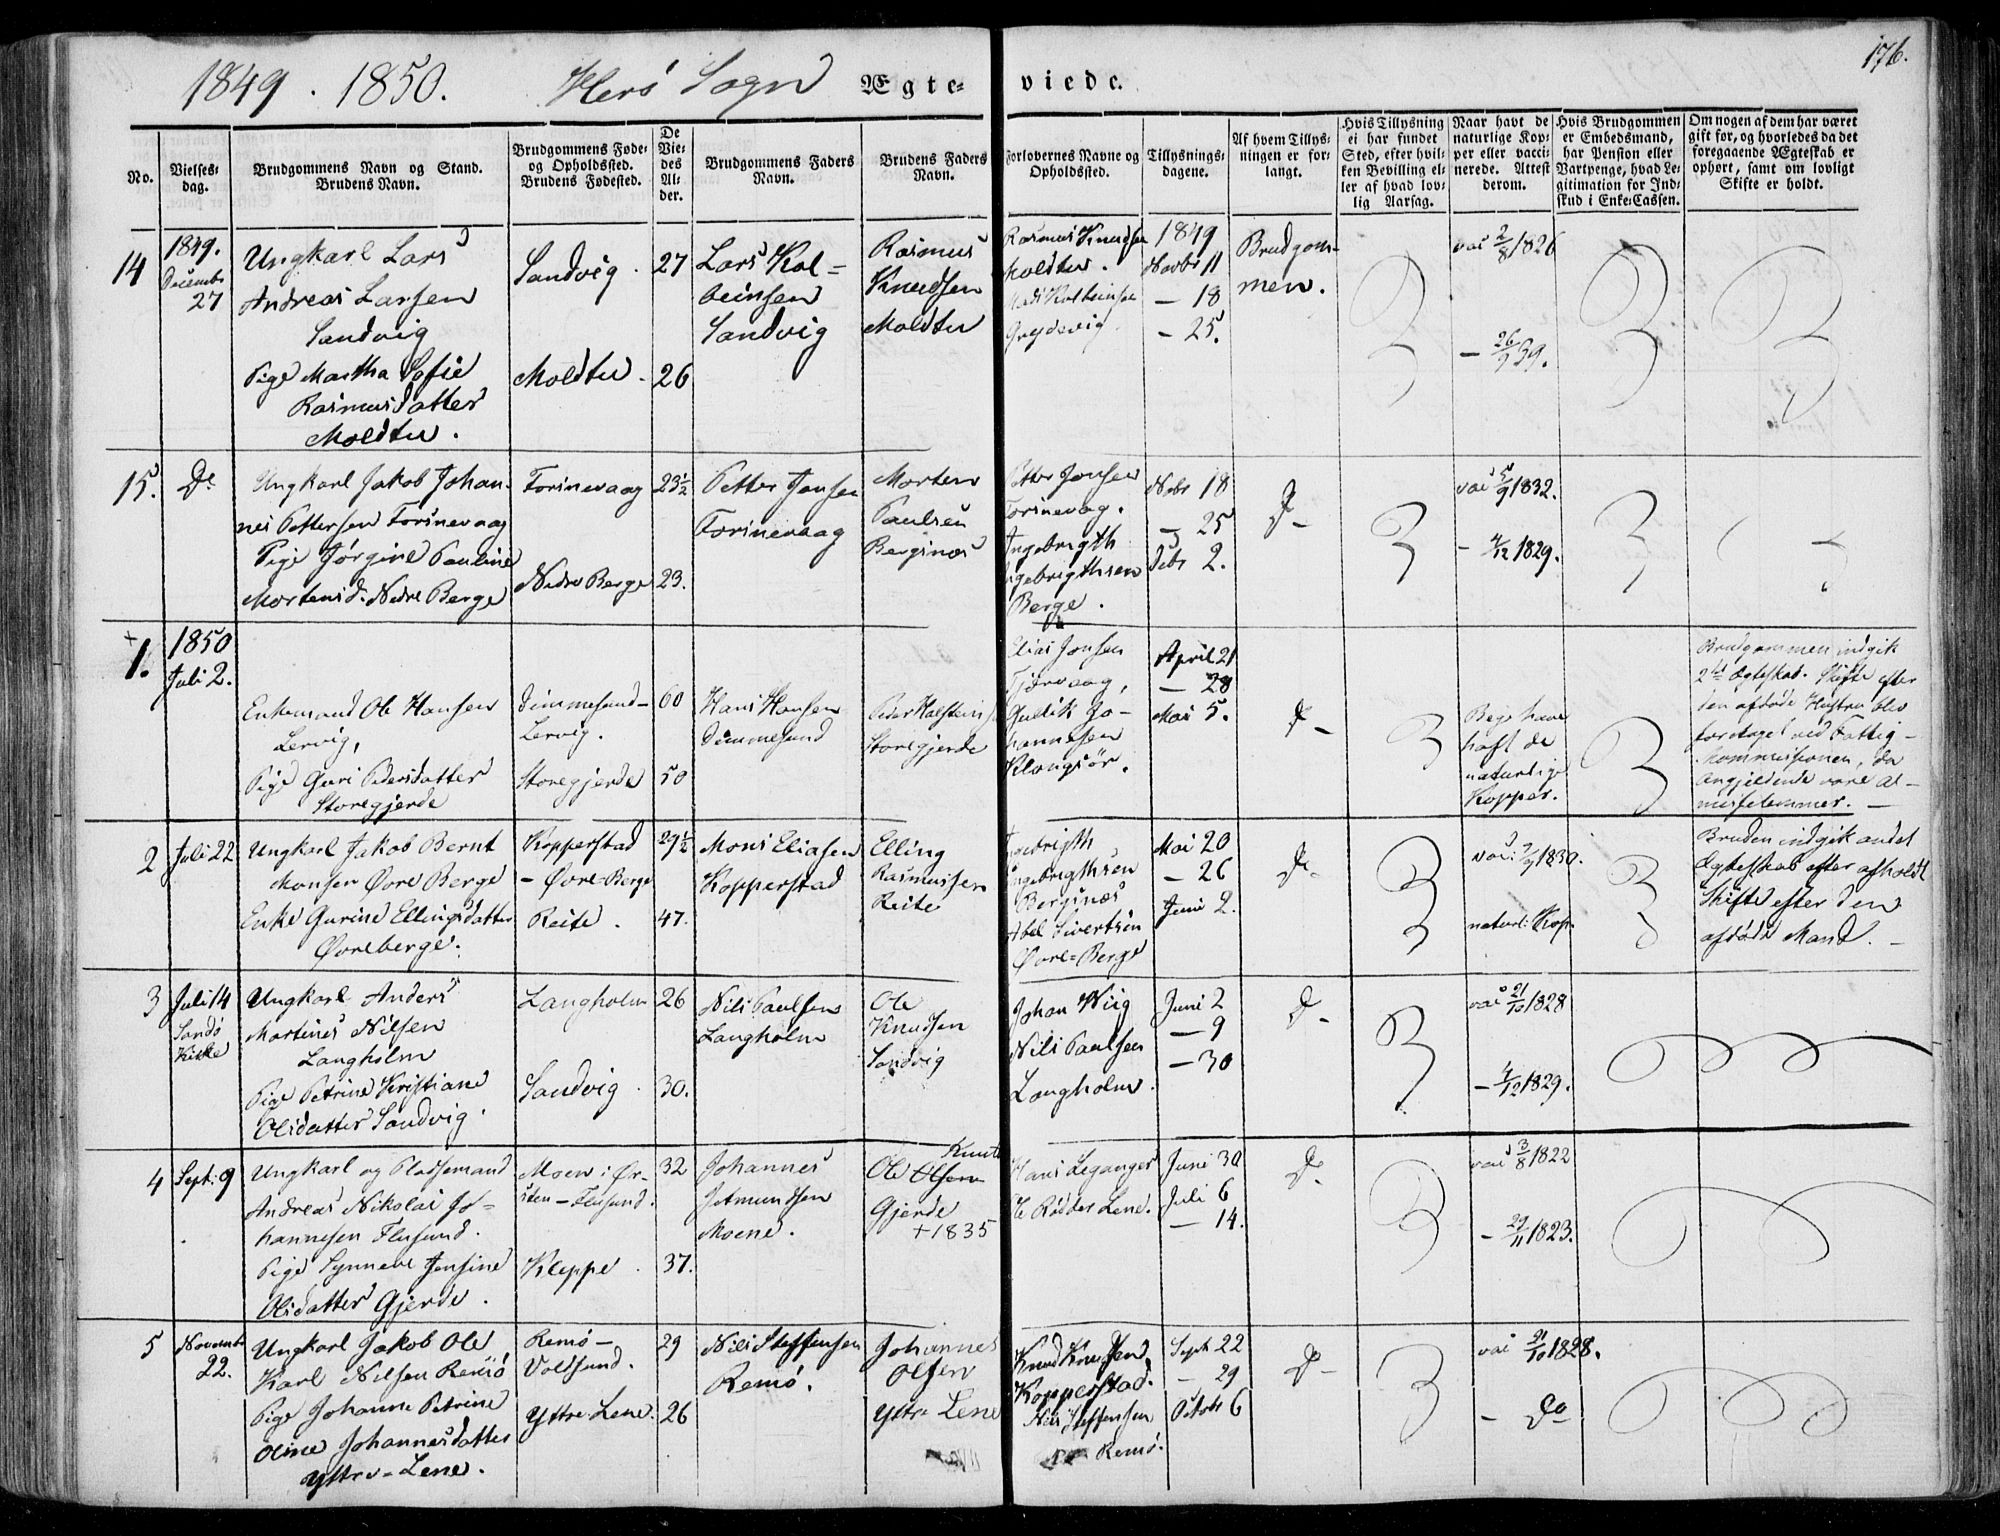 176.
1849 . 1850. Herö Sogn Ægte- viede.
No.
Vielses-
dag.
Brudgommens Navn og Stand.
Brudens Navn.
Brudgommens Føde-
og Opholdssted.
Brudens Fødested.
De
Vie-
des
Al-
der.
Brudgommens Faders
Navn.
Brudens Faders
Navn.
Forlovernes Navne og
Opholdssted.
Tillysnings-
dagene.
Af hvem Tillys-
ningen er for-
langt.
Hvis Tillysning
ei har fundet
Sted, efter hvil-
ken Bevilling el-
ler af hvad lov-
lig Aarsag.
Naar havt de
naturlige Kop-
per eller vacci-
nerede. Attest
derom.
Hvis Brudgommen
er Embedsmand,
har Pension eller
Vartpenge, hvad Le-
gitimation for Ind-
skud i Enke-Cassen.
Om nogen af dem har været
gift før, og hvorledes da det
foregaaende Ægteskab er
ophørt, samt om lovligt
Skifte er holdt.
14
1849.
Decembr
27
Ungkarl Lars
Andreas Larsen
Sandvig
Pige Martha Sofie
Rasmusdatter
Moldtu.
Sandvig. 27
Moldtu. 26
Lars Kol-
beinsen
Sandvig
Rasmus
Knudsen
Moldtu
Rasmus Knudsen
Moldtu.
Mads Kolbeinsen
1849
Novbr 11
- 18
- 25.
Brudgom-
men.
vac 2/8 1826
- 26/9 39.
15.
Do
Ungkarl Jakob Johan-
nes Pettersen Torinevaag
Pige Jørgine Pauline
Mortensd. Nedre Berge
Torinevaag 23½
Nedre Berge 23.
Petter Jonsen
Torinevaag
Morten
Paulsen
Bergsnæs
Petter Jonsen
Torinevaag.
Ingebrigth
Ingebrigthsen
Berge.
Nobr 18
- 25
Debr 2.
D-
vac 5/9 1832.
- 4/12 1829.
+1.
1850
Juli 2.
Enkemand Ole Hansen
Lervig,
Pige Guri Pedersdatter
Storegjerde
Dimmesund-
Lervig. 60
Storegjerde 50
Hans Hansen
Dimmesund
Peder Halsteins
Storegjerde
Elias Jonsen
Tjørvaag,
Gullik Jo-
hannesen
Klongsör.
April 21
- 28
Mai 5.
D-
Bege have
haft de
naturlige
Kopper.
Brudgommen indgik
2det Ægteskab. Skifte efter
den afdøde Hustru blev
foretaget ved Fattig-
kommissionen, da
angjeldende vare al-
misselemmer.-
2
Juli 22
Ungkarl Jakob Bernt
Monsen Øvre Berge
Enke Gurine Ellingsdatter
Øvreberge.
Kopperstad
- Øvre-Berge 29½
Reite. 47.
Mons Eliasen
Kopperstad
Elling
Rasmussen
Reite
Ingebrigth
Ingebrigthsen
Bergsnæs
Abel Sivertsen
Øvre=Berge
Mai 20
- 26
Juni 2.
D-
vac: 7/9 1830.
naturl: Kop.
Bruden indgik andet
Ægteskab efter afholdt
Skifte efter den
afdøde Mand.-
3
Juli 14
Sandö
Kirke
Ungkarl Anders
Martines Nilsen
Langholm
Pige Petrine Kristiane
Olsdatter Sandvig.
Langholm 26
Sandvig. 30.
Nils Paulsen
Langholm
Ole
Knudsen
Sandvig
Johan Wiig
Nils Paulsen
Langholm.
Juni 2
- 9
- 30
D-
vac 21/10 1828
- 4/12 1829.
4
Sept: 9
Ungkarl og Pladsemand
Andreas Nikolai Jo-
hannesen Flusund.
Pige Synneve Jensine
Olsdatter Gjerde.
Moen i Ør-
sten - Flusund. 32
Kleppe. 37.
Johannes
Jetmundsen
Moene.
Knuts
Ole Olsen
Gjerde
+ 1835
Hans Leganger
Rødder Lene.
Juni 30
Juli 6
- 14.
D-
vac 3/8 1822
- 29/11 1823.
5
Novembr
22.
Ungkarl Jakob Ole
Karl Nilsen Remö
Pige Johanne Petrine
Oline Johannesdatter
Yttre-Lene.
Remö-
Voldsund. 29
Yttre Lene. 26
Nils Steffensen
Remö.
Johannes
Olsen
Yttre Lene
Knud Knudsen
Kopperstad.
Nils Steffensen
Remö.
Sept 22
- 29
Octobr 6
D-
vac 21/10 1828.
- Do